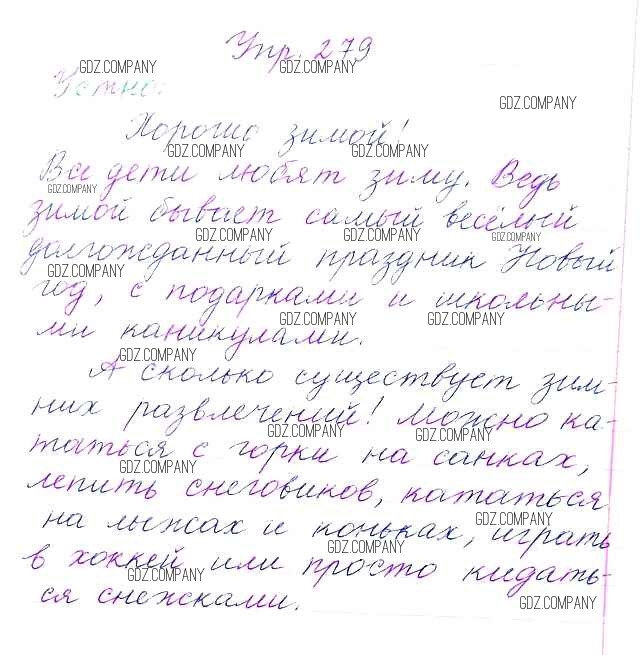 Упр. 279
GDZ.COMPANY GDZ.COMPANY
Устно.
GDZ.COMPANY
Хорошо зимой!
GDZ.COMPANY GDZ.COMPANY
Все дети любят зиму. Ведь
GDZ.COMPANY
зимой бывает самый весёлый
GDZ.COMPANY GDZ.COMPANY GDZ.COMPANY
долгожданный праздник Новый
GDZ.COMPANY
год, с подарками и школьны-
GDZ.COMPANY GDZ.COMPANY
ми каникулами.
GDZ.COMPANY
А сколько существует зим-
них развлечений! Можно ка-
GDZ.COMPANY GDZ.COMPANY
таться с горки на санках,
GDZ.COMPANY
лепить снеговиков, кататься
GDZ.COMPANY
на лыжах и коньках, играть
GDZ.COMPANY
в хоккей или просто кидать-
GDZ.COMPANY
ся снежками.
GDZ.COMPANY